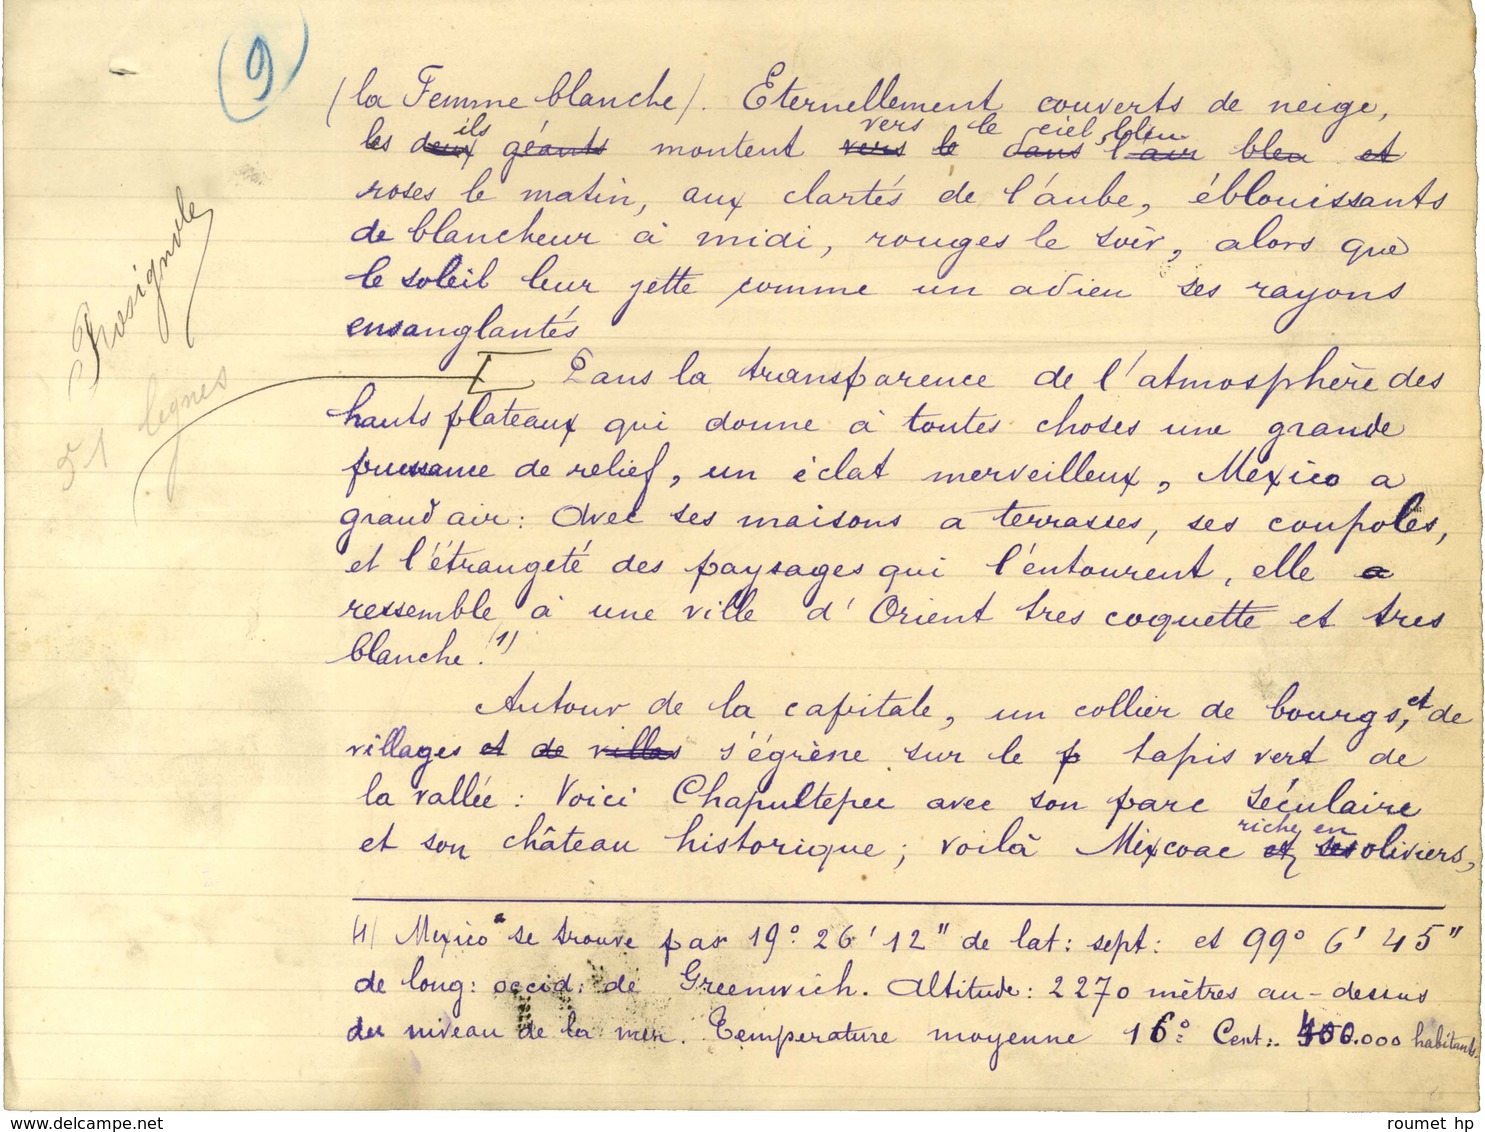 9
(la Femme blanche). Eternellement couverts de neige,
ils vers le ciel bleu
les deux géants montent vers le dans l'air bleu et
roses le matin, aux clartés de l'aube, éblouissants
de blancheur à midi, rouges le soir, alors que
le soleil leur jette comme un adieu ses rayons
ensanglantés
Rosignole
lignes
Dans la transparence de l'atmosphère des
hauts plateaux qui donne à toutes choses une grande
puissance de relief, un éclat merveilleux, Mexico a
grand air: Avec ses maisons a terrasses, ses coupoles,
et l'étrangeté des paysages qui l'entourent, elle a
ressemble à une ville d'Orient tres coquette et tres
blanche.(1)
Autour de la capitale, un collier de bourgs, et de
villages et de villas s'égrène sur le p tapis vert de
la vallée: Voici Chapultepec avec son parc séculaire
et son château historique; voilà Mixcoac et ses oliviers,
riche en
(1) Mexico se trouve par 19° 26' 12" de lat: sept: et 99° 6' 45"
de long: occid: de Greenwich. Altitude: 2270 mètres au-dessus
du niveau de la mer. Température moyenne 16° Cent:. 400.000 habitants.
roumet hp
www.delcampe.net